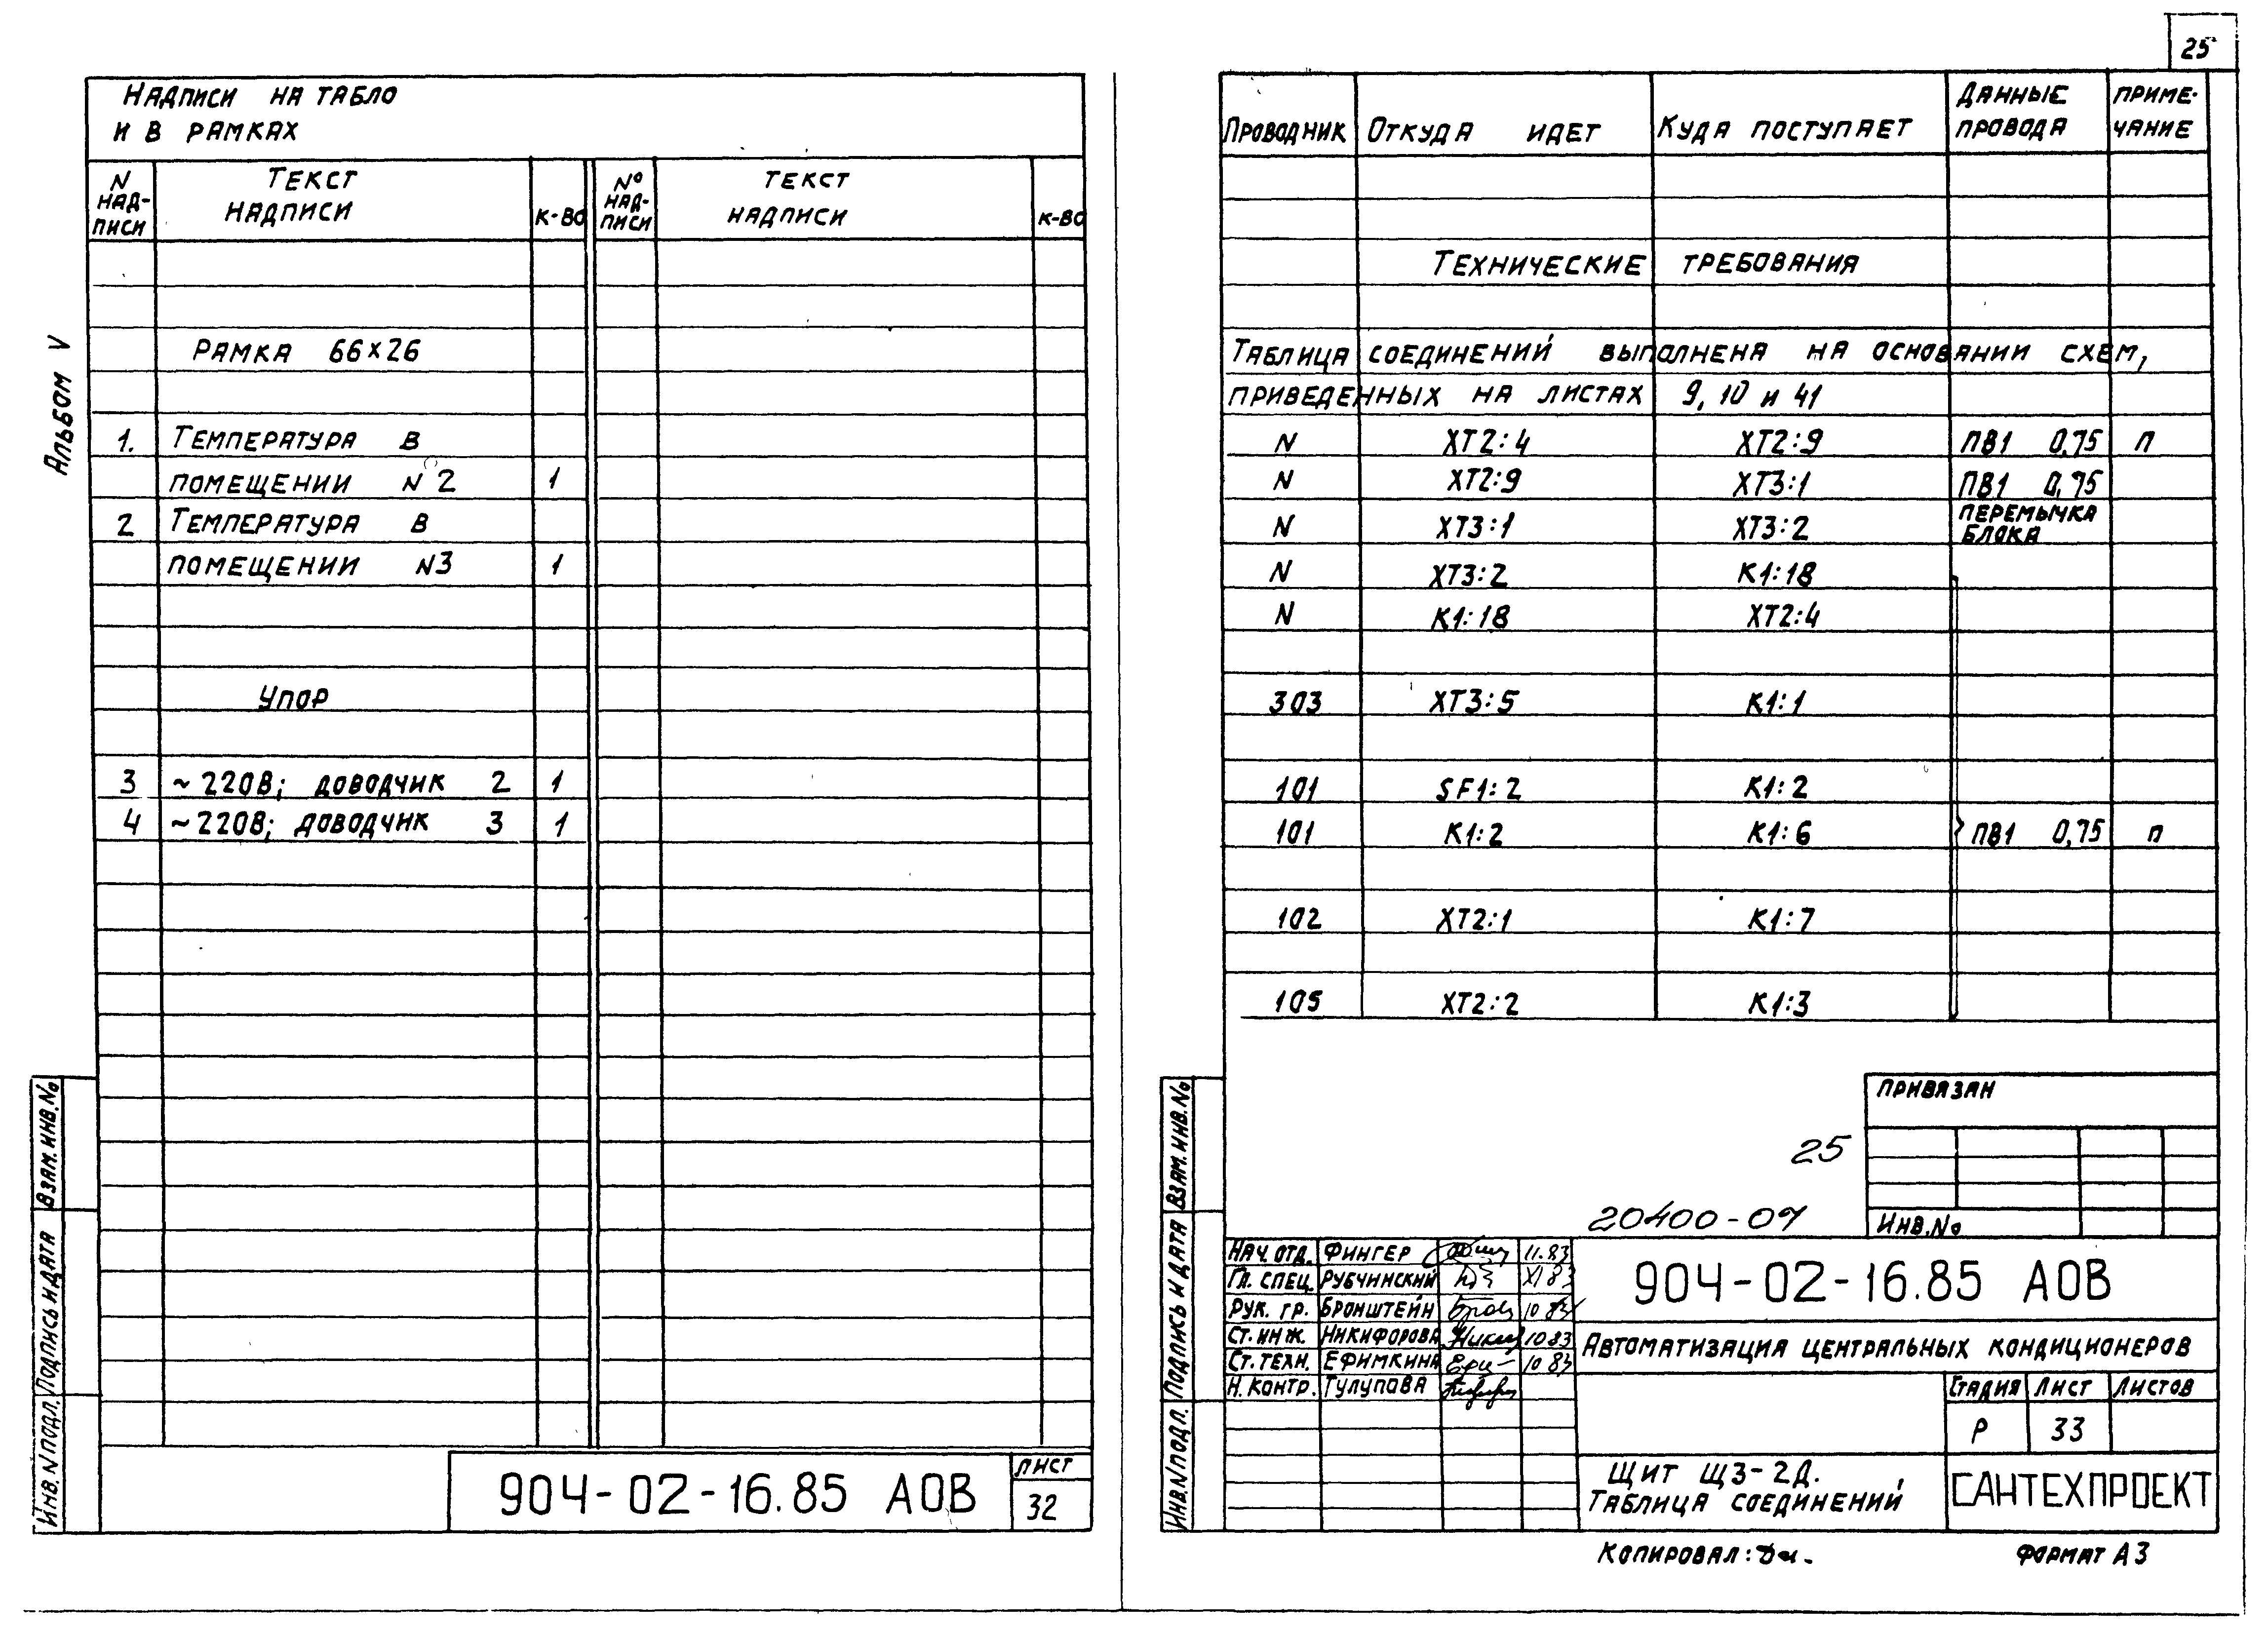 25
Альбом V
Надписи на табло
и в рамках
N надписи Текст надписи к-во № надписи текст надписи к-во
Рамка 66×26
1. Температура в
помещении N 2 1
2 Температура в
помещении N3 1
Упор
3 ~220В; доводчик 2 1
4 ~220В; доводчик 3 1
Взам. инв. №
Подпись и дата
Инв. N подл.
904-02-16.85 АОВ
лист
32
Проводник Откуда идет Куда поступает Данные провода Приме-чание
Технические требования
Таблица соединений выполнена на основании схем,
приведенных на листах 9, 10 и 41
N XT2:4 XT2:9 ПВ1 0,75 п
N XT2:9 XT3:1 ПВ1 0,75
N XT3:1 XT3:2 перемычка блока
N XT3:2 K1:18
N K1:18 XT2:4
303 XT3:5 K1:1
101 SF1:2 K1:2
101 K1:2 K1:6 ПВ1 0,75 п
102 XT2:1 K1:7
105 XT2:2 K1:3
Взам. инв. №
Подпись и дата
Инв. N подл.
Привязан
Инв. №
25
20400-07
Нач. отд. Фингер 11.83
Гл. спец. Рубчинский XI 83
Рук. гр. Бронштейн 10 83
Ст. инж. Никифорова 10 83
Ст. техн. Ефимкина 10 83
Н. контр. Тулупова
904-02-16.85 АОВ
Автоматизация центральных кондиционеров
Стадия Лист Листов
Р 33
Щит Щ3-2Д.
Таблица соединений
САНТЕХПРОЕКТ
Копировал:
Формат А3